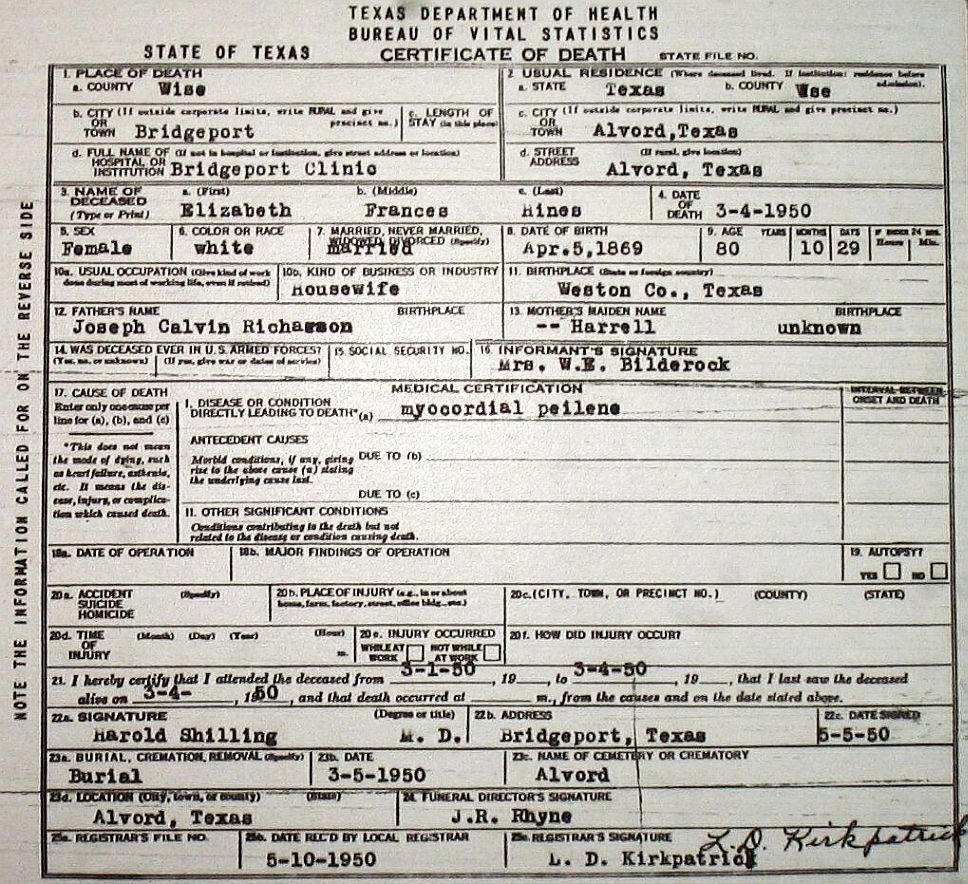 TEXAS DEPARTMENT OF HEALTH
BUREAU OF VITAL STATISTICS
STATE OF TEXAS CERTIFICATE OF DEATH STATE FILE NO.
1. PLACE OF DEATH
a. COUNTY Wise
2 USUAL RESIDENCE (Where deceased lived. If institution: residence before admission).
a. STATE Texas b. COUNTY Wse
b. CITY (If outside corporate limits, write RURAL and give precinct no.)
OR
TOWN Bridgeport
c. LENGTH OF
STAY (in this place)
c. CITY (If outside corporate limits, write RURAL and give precinct no.)
OR
TOWN Alvord,Texas
d. FULL NAME OF (If not in hospital or institution, give street address or location)
HOSPITAL OR
INSTITUTION Bridgeport Clinic
d. STREET (If rural, give location)
ADDRESS Alvord, Texas
3. NAME OF DECEASED
(Type or Print)
a. (First) b. (Middle) c. (Last)
Elizabeth Frances Hines
4. DATE
OF
DEATH 3-4-1950
5. SEX
Female
6. COLOR OR RACE
white
7. MARRIED, NEVER MARRIED,
WIDOWED, DIVORCED (Specify)
married
8. DATE OF BIRTH
Apr.5,1869
9. AGE YEARS MONTHS DAYS IF UNDER 24 HRS.
Hours Min.
80 10 29
10a. USUAL OCCUPATION (Give kind of work
done during most of working life, even if retired)
10b. KIND OF BUSINESS OR INDUSTRY
Housewife
11. BIRTHPLACE (State or foreign country)
Weston Co., Texas
12. FATHER'S NAME BIRTHPLACE
Joseph Calvin Richarson
13. MOTHER'S MAIDEN NAME BIRTHPLACE
-- Harrell unknown
14. WAS DECEASED EVER IN U.S. ARMED FORCES?
(Yes, no, or unknown) (If yes, give war or dates of service)
15. SOCIAL SECURITY NO.
16. INFORMANT'S SIGNATURE
Mrs. W.E. Bilderock
17. CAUSE OF DEATH
Enter only one cause per
line for (a), (b), and (c)
*This does not mean
the mode of dying, such
as heart failure, asthenia,
etc. It means the dis-
ease, injury, or complica-
tion which caused death.
MEDICAL CERTIFICATION
INTERVAL BETWEEN
ONSET AND DEATH
I. DISEASE OR CONDITION
DIRECTLY LEADING TO DEATH* (a) myocordial peilene
ANTECEDENT CAUSES
Morbid conditions, if any, giving
rise to the above cause (a) stating
the underlying cause last.
DUE TO (b)
DUE TO (c)
II. OTHER SIGNIFICANT CONDITIONS
Conditions contributing to the death but not
related to the disease or condition causing death.
18a. DATE OF OPERATION
18b. MAJOR FINDINGS OF OPERATION
19. AUTOPSY?
YES NO
20a. ACCIDENT (Specify)
SUICIDE
HOMICIDE
20b. PLACE OF INJURY (e.g., in or about
home, farm, factory, street, office bldg., etc.)
20c. (CITY, TOWN, OR PRECINCT NO.) (COUNTY) (STATE)
20d. TIME (Month) (Day) (Year) (Hour)
OF
INJURY m.
20e. INJURY OCCURRED
WHILE AT WORK NOT WHILE AT WORK
20f. HOW DID INJURY OCCUR?
21. I hereby certify that I attended the deceased from 3-1-50, 19, to 3-4-50, 19, that I last saw the deceased
alive on 3-4-, 1950, and that death occurred at m., from the causes and on the date stated above.
22a. SIGNATURE (Degree or title)
Harold Shilling M. D.
22b. ADDRESS
Bridgeport, Texas
22c. DATE SIGNED
5-5-50
23a. BURIAL, CREMATION, REMOVAL (Specify)
Burial
23b. DATE
3-5-1950
23c. NAME OF CEMETERY OR CREMATORY
Alvord
23d. LOCATION (City, town, or county) (State)
Alvord, Texas
24. FUNERAL DIRECTOR'S SIGNATURE
J.R. Rhyne
25a. REGISTRAR'S FILE NO.
25b. DATE REC'D BY LOCAL REGISTRAR
5-10-1950
25c. REGISTRAR'S SIGNATURE
L. D. Kirkpatrick
L. D. Kirkpatrick
NOTE THE INFORMATION CALLED FOR ON THE REVERSE SIDE